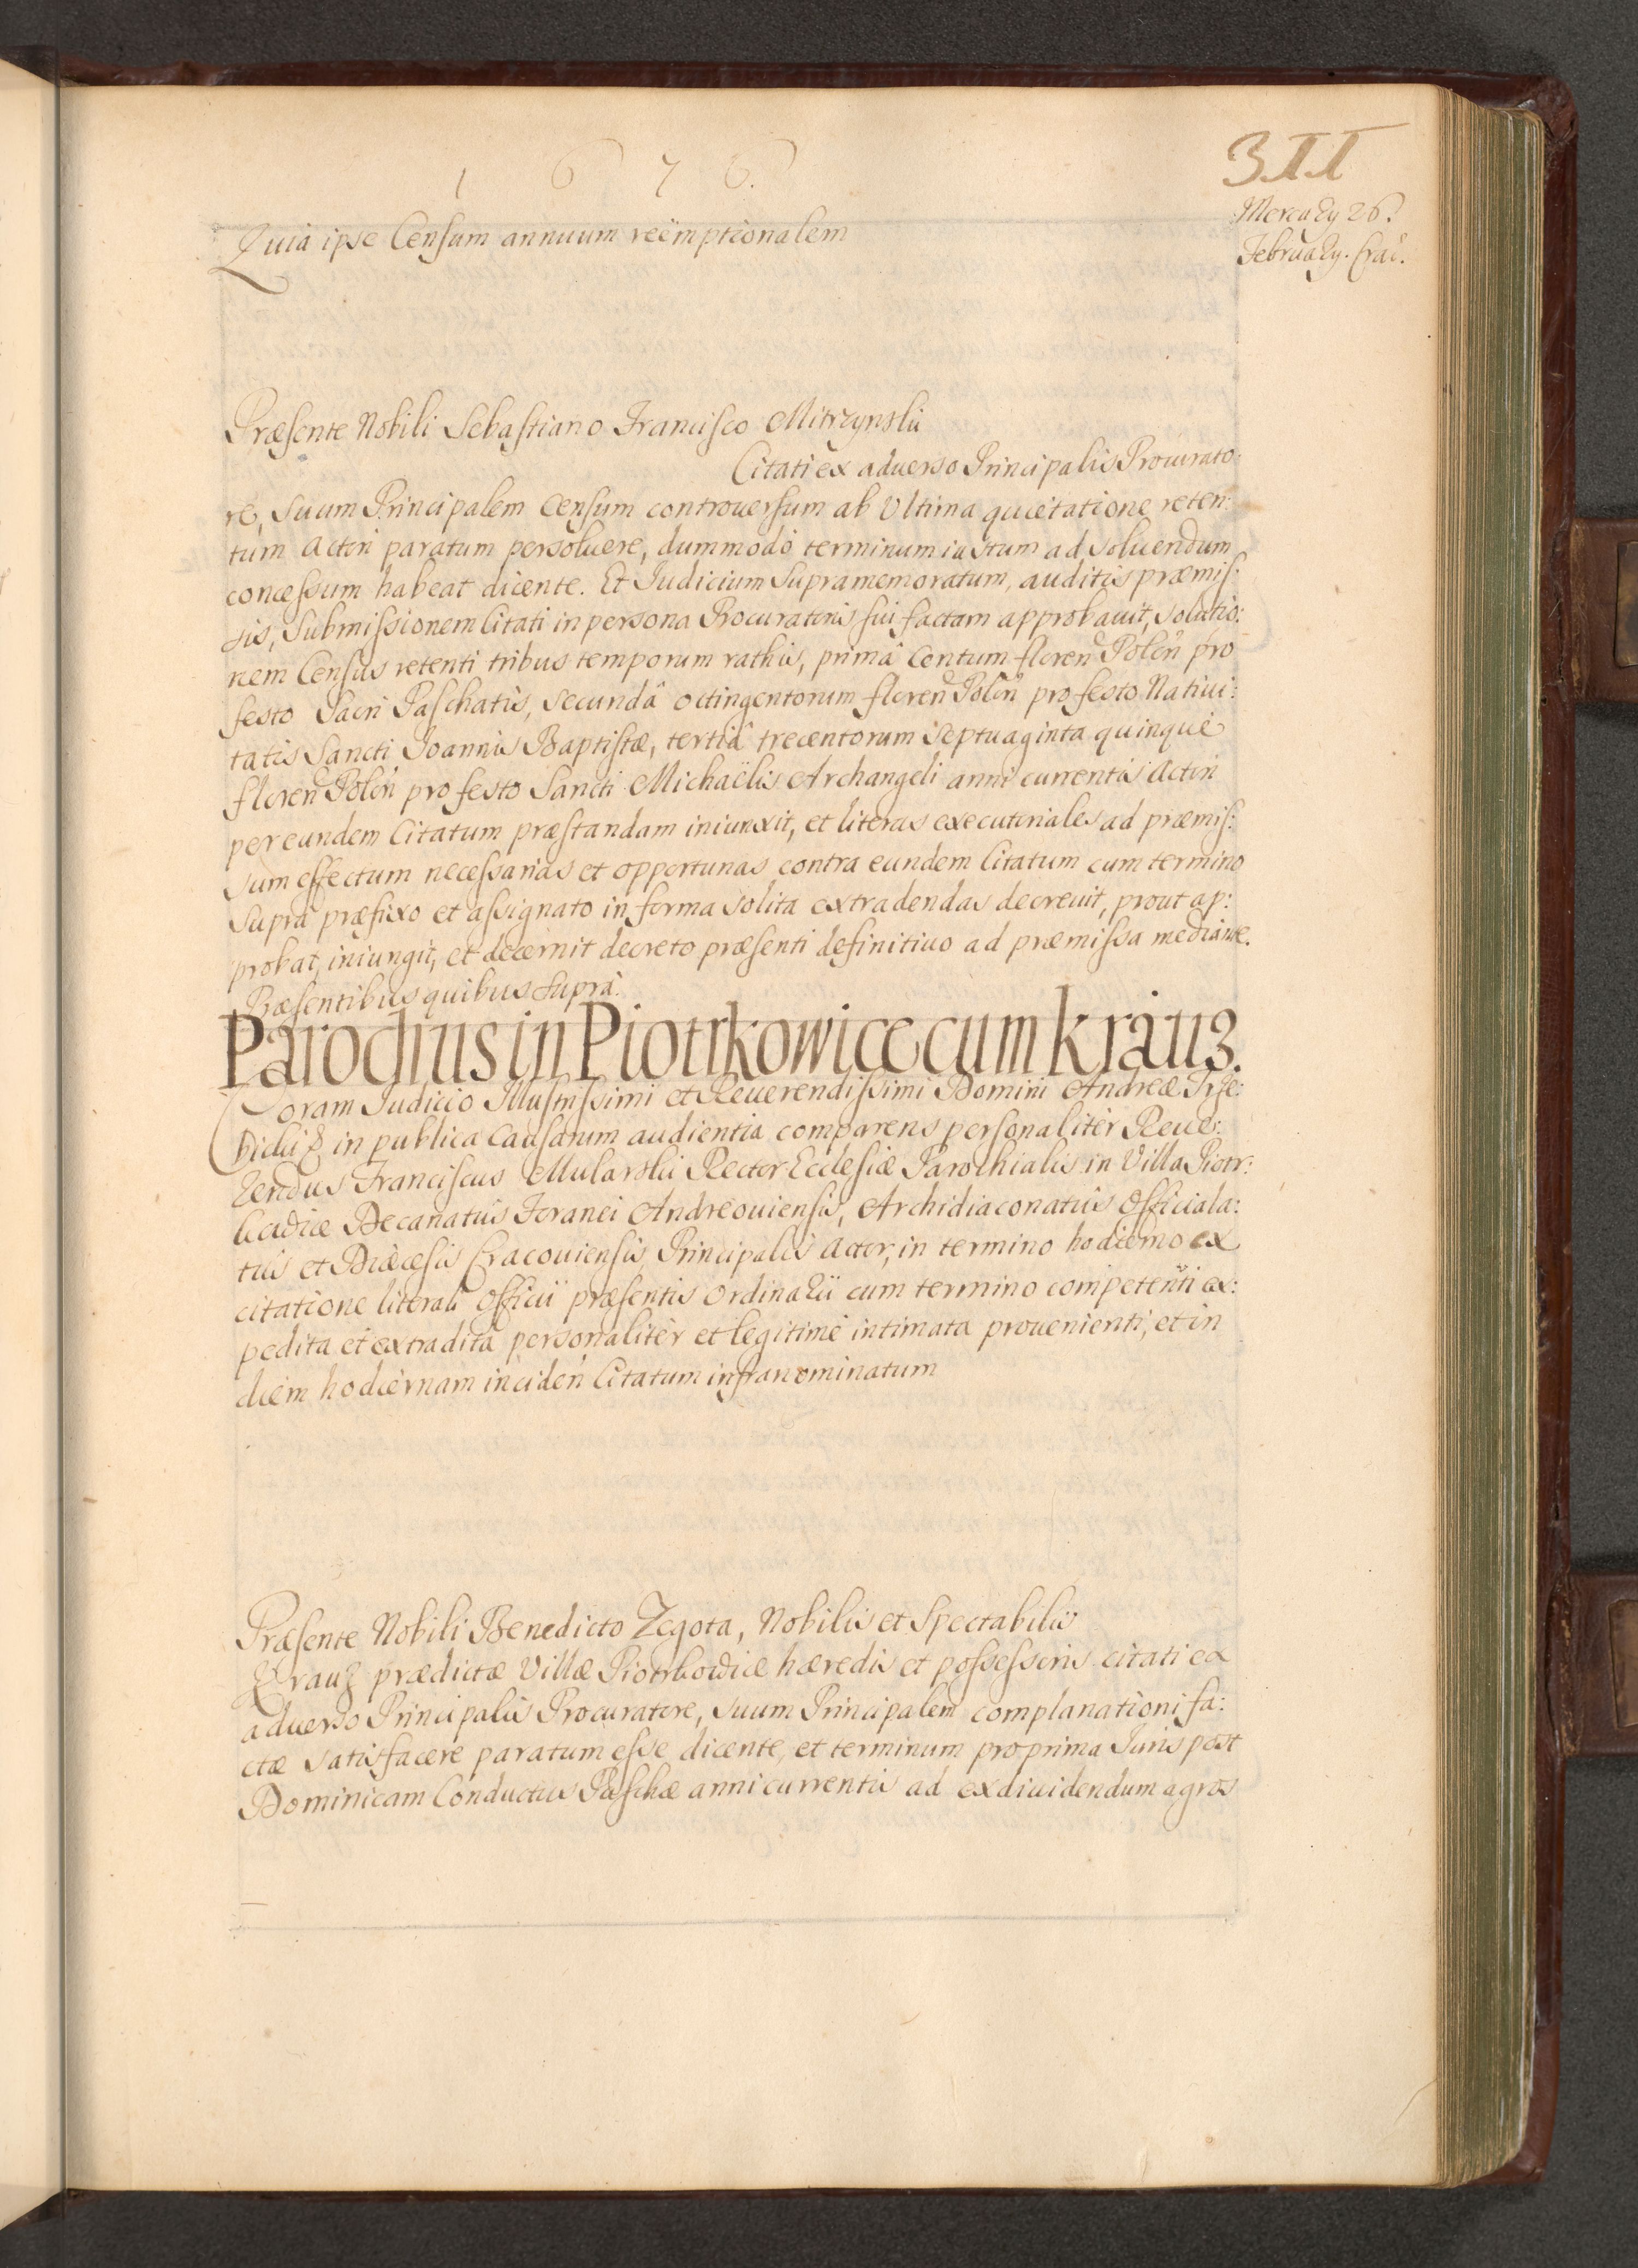 1 6 7 6.
311
Mercurÿ 26.
Februarÿ. Crac.
Quia ipse Censum annuum reëmptionalem
Præsente Nobili Sebastiano Francisco Mitrzynski
Citati ex aduerso Principalis Procurato:
re, suum Principalem Censum controuersum ab Vltima quietatione reten:
tum Actori paratum persoluere, dummodo terminum iustum ad soluendum
concessum habeat dicente. Et Iudicium supramemoratum, auditis præmis:
sis, Submissionem Citati in persona Procuratoris sui factam approbauit, solutio:
nem Census retenti tribus temporum rathis, primâ Centum floren Polon pro
festo Sacri Paschatis, secundâ octingentorum floren Polon pro festo Natiui:
tatis Sancti Ioannis Baptistæ, tertiâ trecentorum septuaginta quinque
floren Polon pro festo Sancti Michaëlis Archangeli anni currentis Actori
per eundem Citatum præstandam iniunxit, et literas executoriales ad præmis:
sum effectum necessarias et opportunas contra eundem Citatum cum termino
supra præfixo et assignato in forma solita extradendas decreuit, prout ap:
probat, iniungit, et decernit decreto præsenti definitiuo ad præmissa mediante.
Præsentibus quibus supra.
Parochus in Piotrkowice cum Krauz.
Coram Iudicio Illustrissimi et Reuerendissimi Domini Andreæ Trze:
bicki in publica Causarum audientia comparens personaliter Reue:
rendus Franciscus Mularski Rector Ecclesiæ Parochialis in Villa Piotr:
kowice Decanatus Foranei Andreouiensis, Archidiaconatus Officiala:
tus et Diæcesis Cracouiensis Principalis Actor, in termino hodierno ex
citatione literali Officii præsentis Ordinarii cum termino competenti ex:
pedita et extradita personaliter et legitime intimata prouenienti, et in
diem hodiernam inciden Citatum infranominatum
Præsente Nobili Benedicto Zegota, Nobilis et Spectabilis
Krauz prædictæ Villæ Piotrkowice hæredis et possessoris citati ex
aduerso Principalis Procuratore, suum Principalem complanationi fa:
ctæ satisfacere paratum esse dicente, et terminum pro prima Iuris post
Dominicam Conductus Paschæ anni currentis ad exdiuidendum agros